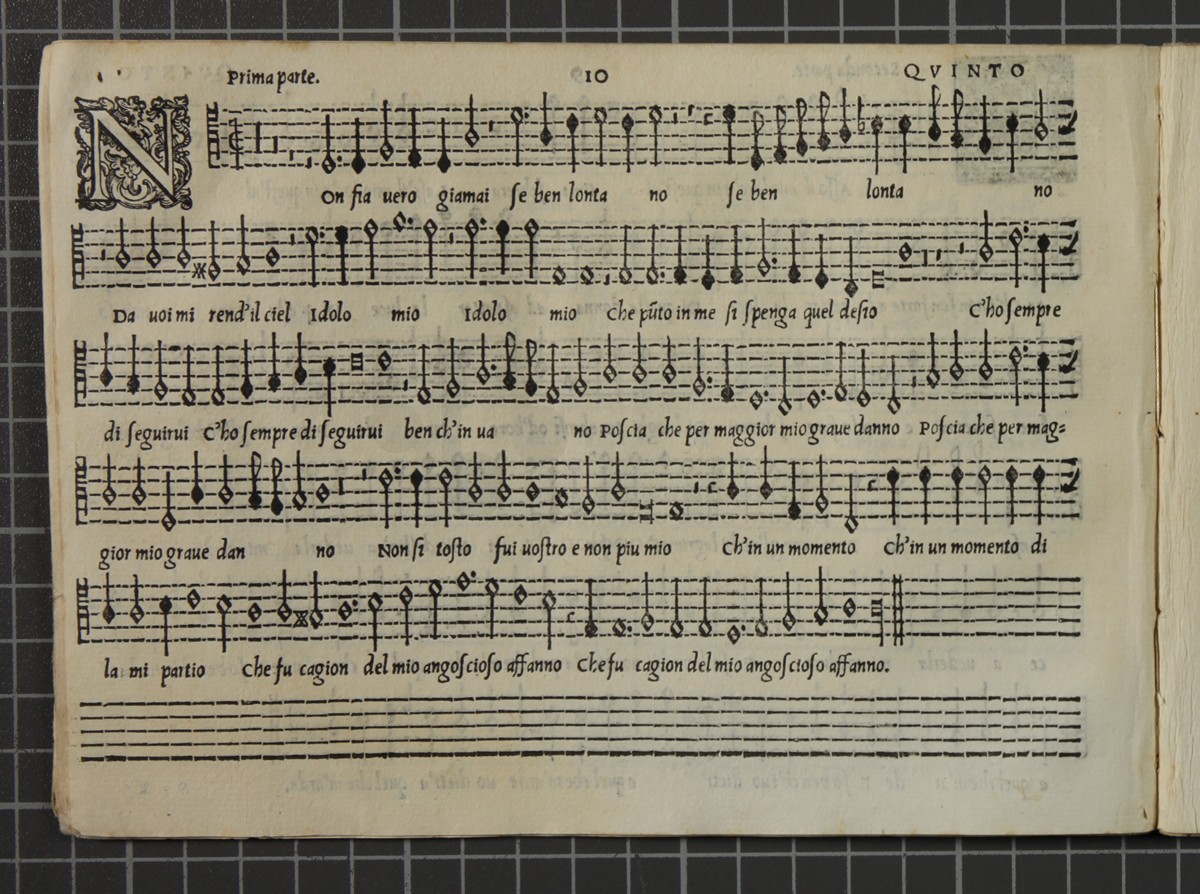 Prima parte. 10 QVINTO
NOn fia uero giamai se ben lonta no se ben lonta no
Da uoi mi rend'il ciel Idolo mio Idolo mio Che pũto in me si spenga quel desio C'ho sempre
di seguirui C'ho sempre di seguirui ben ch'in ua no Poscia che per maggior mio graue danno Poscia che per mag=
gior mio graue dan no Non si tosto fui uostro e non piu mio Ch'in un momento Ch'in un momento di
la mi partio Che fu cagion del mio angoscioso affanno Che fu cagion del mio angoscioso affanno.